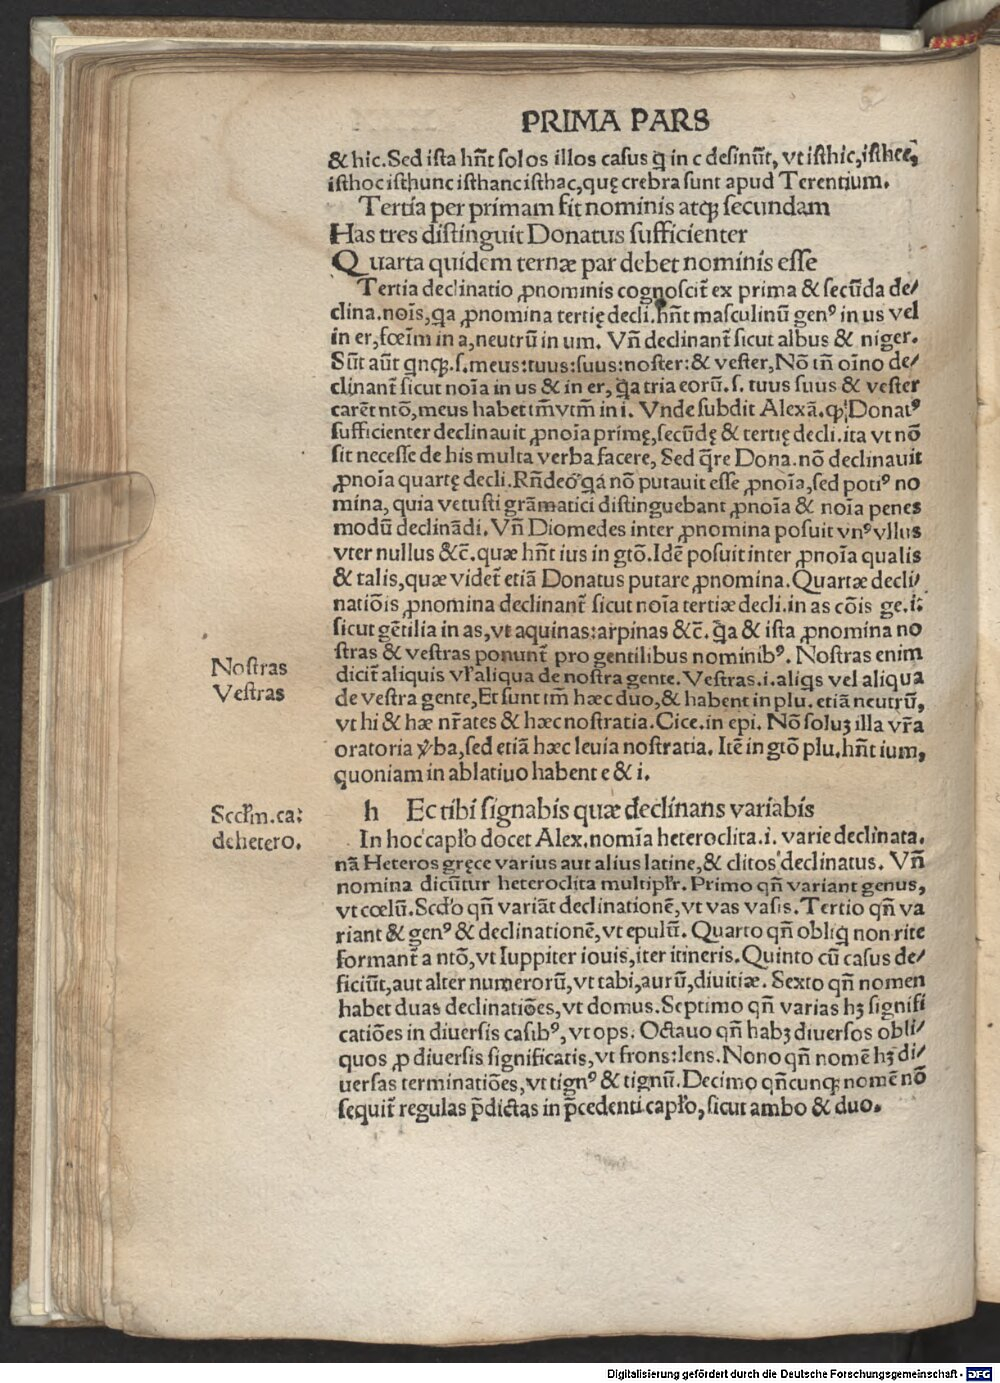 PRIMA PARS
& hic. Sed ista hñt solos illos casus q̃ in c desinũt, vt isthic, isthęc,
isthoc isthunc isthanc isthac, quę crebra sunt apud Terentium.
Tertia per primam fit nominis atqꝫ secundam
Has tres distinguit Donatus sufficienter
Quarta quidem ternæ par debet nominis esse
Tertia declinatio ꝓnominis cognoscit̃ ex prima & secũda de/
clina. noĩs, qa ꝓnomina tertię decli. hñt masculinũ genꝰ in us vel
in er, fœĩm in a, neutrũ in um. Vñ declinant̃ sicut albus & niger.
Sũt aũt qnqꝫ. s. meus: tuus: suus: noster: & vester, Nõ tñ oĩno de/
clinant̃ sicut noĩa in us & in er, q̃a tria eorũ. s. tuus suus & vester
carẽt ntõ, meus habet tm̃ vtm̃ in i. Vnde subdit Alexã. qꝙ Donatꝰ
sufficienter declinauit ꝓnoĩa primę, secũdę & tertię decli. ita vt nõ
sit necesse de his multa verba facere, Sed q̃re Dona. nõ declinauit
ꝓnoĩa quartę decli. Rñdeõ qa nõ putauit esse ꝓnoĩa, sed potiꝰ no
mina, quia vetusti grãmatici distinguebant ꝓnoĩa & noĩa penes
modũ declinãdi. Vñ Diomedes inter ꝓnomina posuit vnꝰ vllus
vter nullus &c̃. quæ hñt ius in gtõ. Idẽ posuit inter ꝓnoĩa qualis
& talis, quæ videt̃ etiã Donatus putare ꝓnomina. Quartæ decli/
natiõis ꝓnomina declinant̃ sicut noĩa tertiæ decli. in as cõis ge. i:
sicut gẽtilia in as, vt aquinas: arpinas &c̃. q̃a & ista ꝓnomina no
stras & vestras ponunt̃ pro gentilibus nominibꝰ. Nostras enim
dicit̃ aliquis vł aliqua de nostra gente. Vestras. i. aliqs vel aliqua
de vestra gente, Et sunt tm̃ hæc duo, & habent in plu. etiã neutrũ,
vt hi & hæ nr̃ates & hæc nostratia. Cice. in epi. Nõ soluꝫ illa vr̃a
oratoria ṽba, sed etiã hæc leuia nostratia. Itẽ in gtõ plu. hñt ium,
quoniam in ablatiuo habent e & i.
Nostras
Vestras
h Ec tibi signabis quæ declinans variabis
Scdm̃. ca:
de hetero.
In hoc capło docet Alex. nomĩa heteroclita. i. varie declinata.
nã Heteros gręce varius aut alius latine, & clitos declinatus. Vñ
nomina dicũtur heteroclita multipłr. Primo qñ variant genus,
vt cœlũ. Scdo qñ variãt declinationẽ, vt vas vasis. Tertio qñ va
riant & genꝰ & declinationẽ, vt epulũ. Quarto qñ obliq̃ non rite
formant̃ a ntõ, vt Iuppiter iouis, iter itineris. Quinto cũ casus de/
ficiũt, aut alter numerorũ, vt tabi, aurũ, diuitiæ. Sexto qñ nomen
habet duas declinatiões, vt domus. Septimo qñ varias hꝫ signifi
catiões in diuersis casibꝰ, vt ops. Octauo qñ habꝫ diuersos obli/
quos ꝑ diuersis significatis, vt frons: lens. Nono qñ nomẽ hꝫ di/
uersas terminatiões, vt tignꝰ & tignũ. Decimo qñcunqꝫ nomẽ nõ
sequit̃ regulas p̃dictas in p̃cedenti capło, sicut ambo & duo.
Digitalisierung gefördert durch die Deutsche Forschungsgemeinschaft - DFG